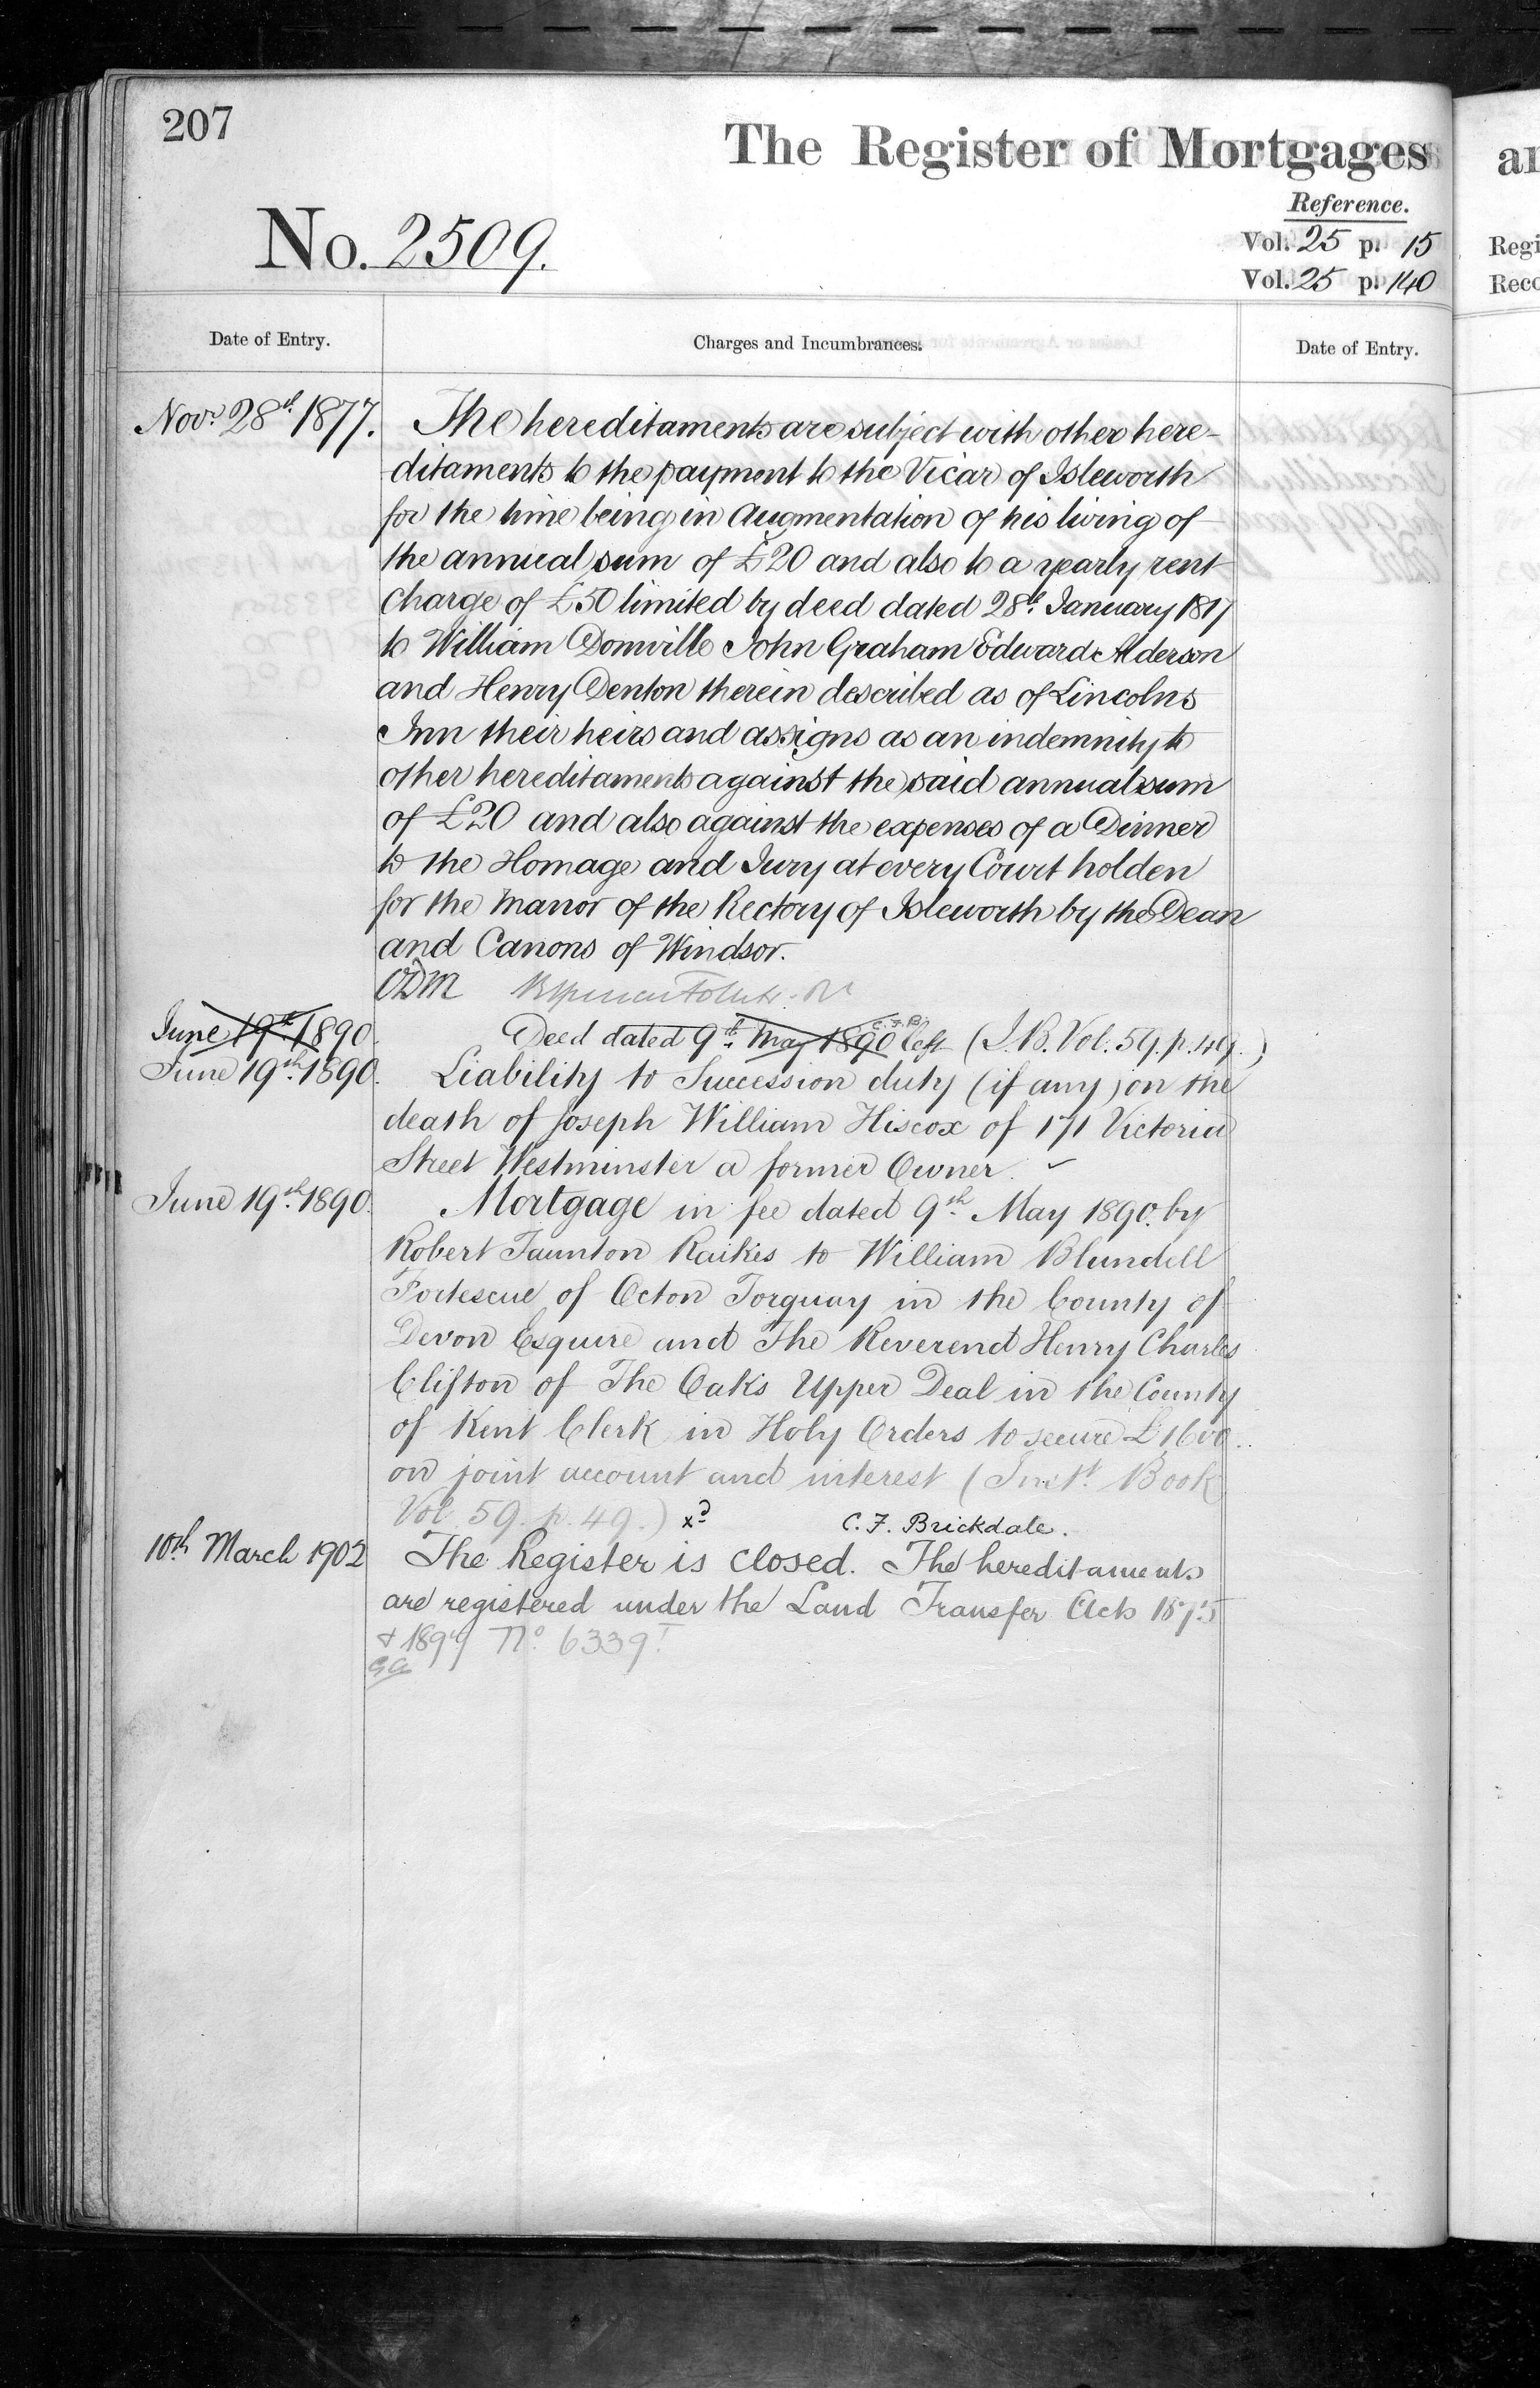 207
The Register of Mortgages
Reference.
No. 2509.
Vol. 25 p. 15
Vol. 25 p. 140
Regi
Reco
Date of Entry.
Charges and Incumbrances.
Date of Entry.
Novr. 28th. 1877.
The hereditaments are subject with other here-
ditaments to the payment to the Vicar of Isleworth
for the time being in Augmentation of his living of
the annual sum of £20 and also to a yearly rent
Charge of £50 limited by deed dated 28th. January 1817
to William Domville John Graham Edward Alderson
and Henry Denton therein described as of Lincolns
Inn their heirs and assigns as an indemnity to
other hereditaments against the said annual sum
of £20 and also against the expenses of a Dinner
to the Homage and Jury at every Court holden
for the Manor of the Rectory of Isleworth by the Dean
and Canons of Windsor.
June 19th. 1890.
Deed dated 9th. May 1890 left (I.B. Vol. 59. p. 49.)
C.F.B.
June 19th. 1890.
Liability to Succession duty (if any) on the
death of Joseph William Hiscox of 171 Victoria
Street Westminster a former Owner.
June 19th. 1890.
Mortgage in fee dated 9th. May 1890. by
Robert Taunton Raikes to William Blundell
Fortescue of Octon Torquay in the County of
Devon Esquire and The Reverend Henry Charles
Clifton of The Oaks Upper Deal in the County
of Kent Clerk in Holy Orders to secure £1600..
on joint account and interest (Inst. Book
Vol. 59. p. 49.) xd
C. F. Brickdale.
10th March 1902
The Register is closed. The hereditaments
are registered under the Land Transfer Acts 1875
& 1897 No. 6339